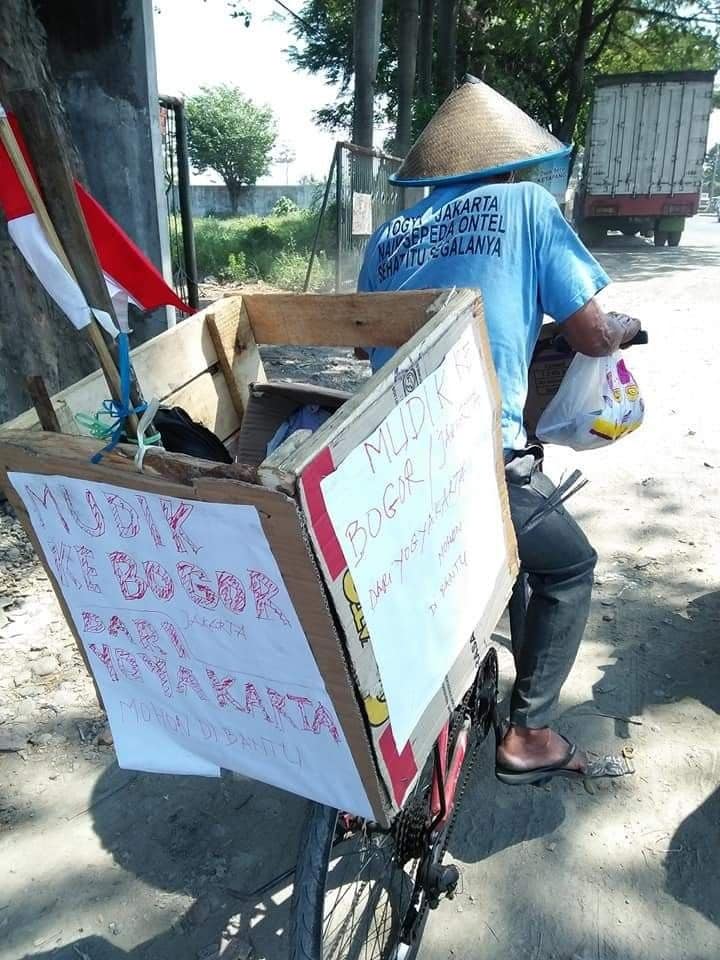 YOGYAKARTA
NAIK SEPEDA ONTEL
SEHAT ITU SEGALANYA
MUDIK KE
BOGOR / JAKARTA
DARI YOGYAKARTA
MOHON
DI BANTU
MUDIK
KE BOGOR
JAKARTA
DARI
YOGYAKARTA
MOHON DI BANTU